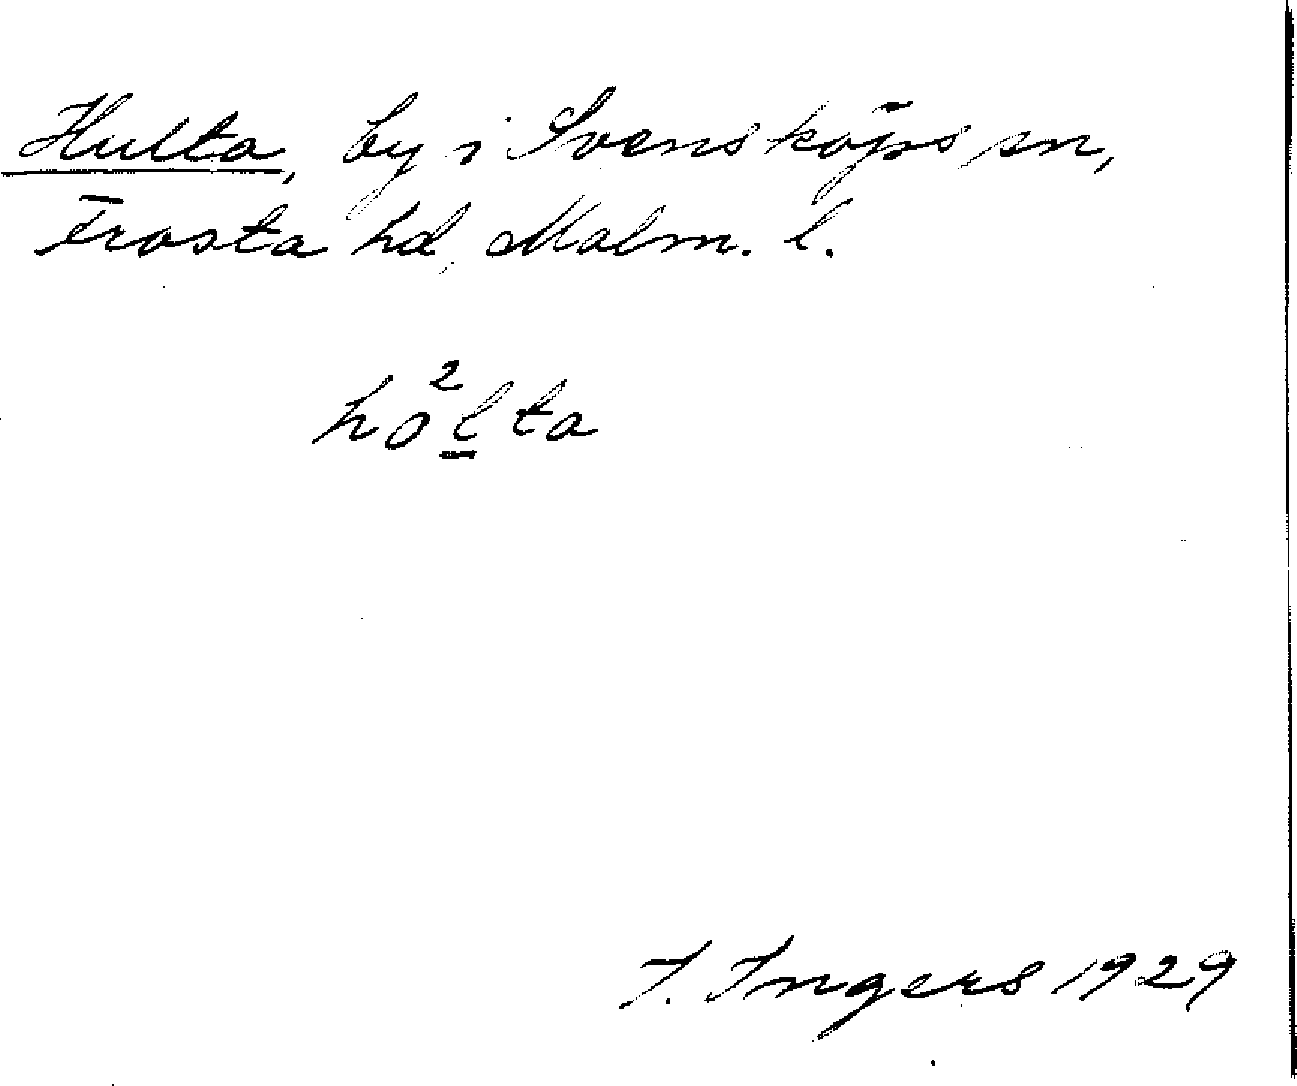 Hulta, by i Svensköps sn,
Frosta hd, Malm. l.
ho²lta
I. Ingers 1929